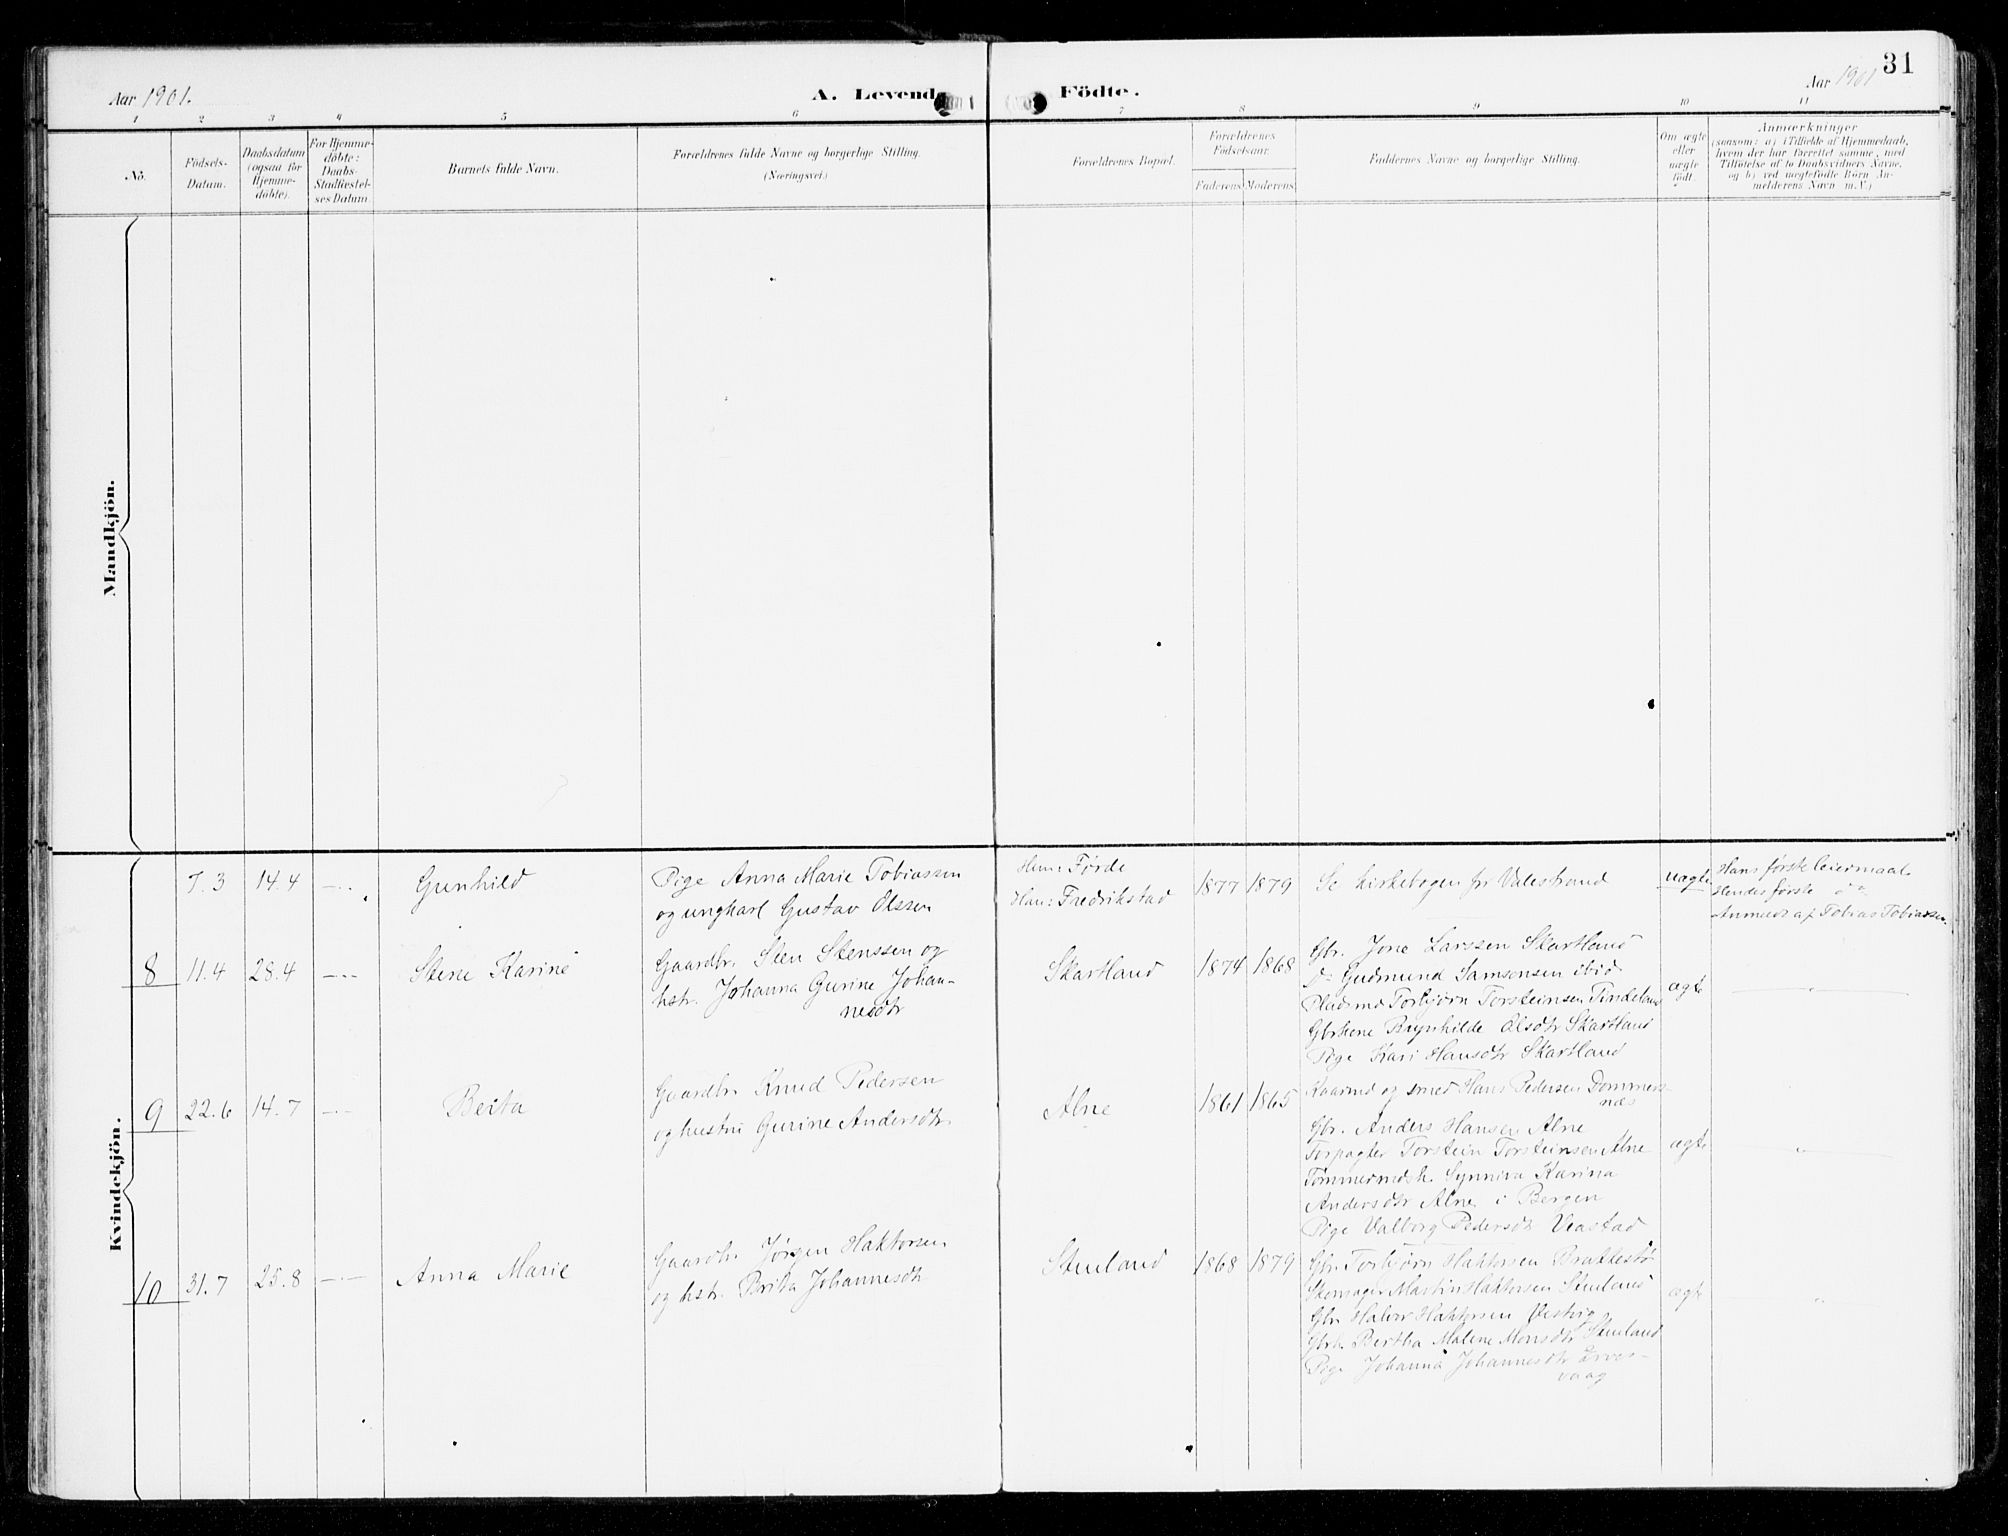 31
Aar 1901.
A. Levende
Födte.
Aar 1901
1 2 3 4 5 6 7 8 9 10 11
No.
Födsels-
Datum.
Daabsdatum
(ogsaa for
Hjemme-
döbte).
For Hjemme-
döbte:
Daabs-
Stadfæstel-
ses Datum
Barnets fulde Navn.
Forældrenes fulde Navne og borgerlige Stilling.
(Næringsvei.)
Forældrenes Bopæl.
Forældrenes
Födselsaar.
Faderens Moderens
Faddernes Navne og borgerlige Stilling.
Om ægte
eller
uægte
født.
Anmærkninger
(saasom: a) i Tilfælde af Hjemmedaab,
hvem der har forrettet samme, med
Tilföielse af to Daabsvidners Navne,
og b) ved uægtefödte Börn An-
melderens Navn m. V.)
Mandkjön.
Kvindekjön.
7.3
14.4
Gunhild
Pige Anna Marie Tobiassen
og ungkarl Gustav Olssen
Hen: Førde
Han: Fredrikstad
1877 1879
Se kirkebogen for Valestrand
uægte
Hans første leiermaal
Hendes første do
Anmeldt af Tobias Tobiassen
8
11.4
28.4
Stine Karine
Gaardbr. Sten Stenssen og
hstr. Johanna Gurine Johan-
nesdtr
Skartland
1874 1868
Gbr. Jone Larssen Skartland
Do Gudmund Samsonsen ibid
Pladsmd Torbjørn Torsteinsen Tindeland
Gbrkone Brynhilde Olsdtr Skartland
Pige Kari Hansdtr Skartland
ægte
9
22.6
14.7
Berta
Gaardbr Knud Pedersen
og hustru Gurine Andersdtr.
Alne
1861 1865
Kaarmd og smed Hans Pedersen Dommers-
næs
Gbr. Anders Hansen Alne
Forpagter Torstein Torsteinsen Alne
Tømmermdsk. Synniva Karina
Andersdtr Alne i Bergen
Pige Valborg Pedersdtr Veastad
ægte
10
31.7
25.8
Anna Marie
Gaardbr. Jørgen Haktorsen
og hstr. Brita Johannesdtr
Stueland
1868 1879
Gbr. Torbjørn Haktorsen Brattestø
Skomager Martin Haktorsen Stueland
Gbr Halvor Haktorsen Vestvig
Gbrk. Bertha Malene Monsdtr Stueland
Pige Johanna Johannesdtr Ørvers-
vaag
ægte